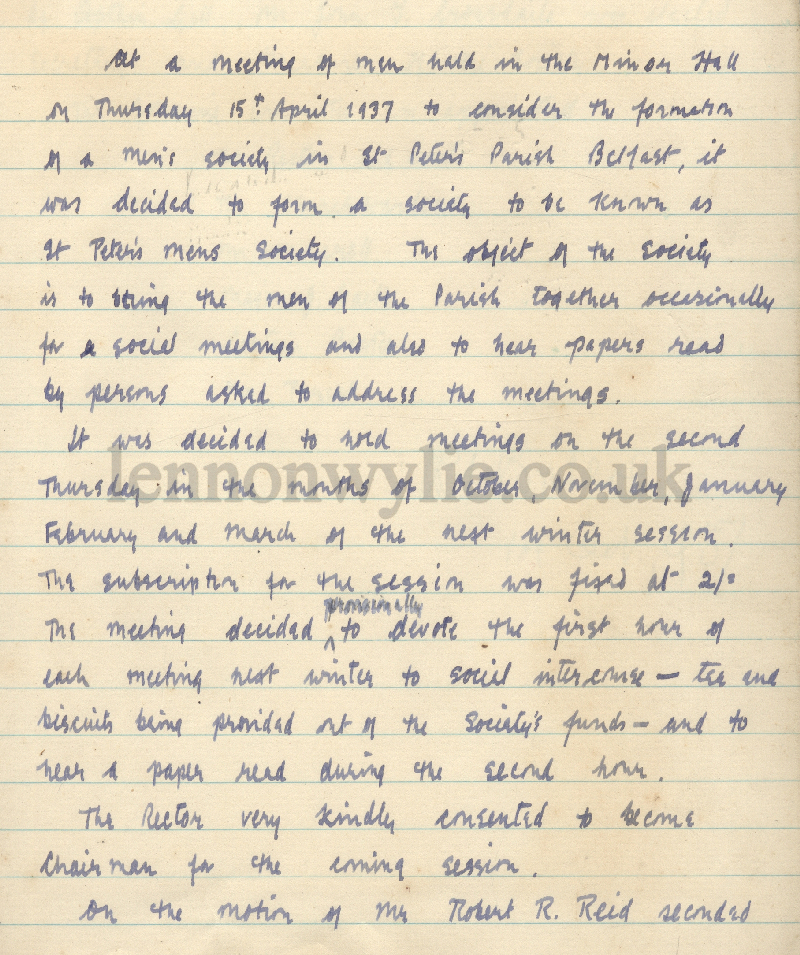 At a meeting of men held in the Minor Hall
on Thursday 15th April 1937 to consider the formation
of a men's society in St Peter's Parish Belfast, it
was decided to form a society to be known as
St Peter's Mens Society. The object of the Society
is to bring the men of the Parish together occasionally
for a social meetings and also to hear papers read
by persons asked to address the meetings.
It was decided to hold meetings on the second
lennonwylie.co.uk
Thursday in the months of October, November, January
February and March of the next winter session.
The subscription for the session was fixed at 2/=
provisionally
The meeting decided ^ to devote the first hour of
each meeting next winter to social intercourse — tea and
biscuits being provided out of the Society's funds — and to
hear a paper read during the second hour.
The Rector very kindly consented to become
Chairman for the coming session.
On the motion of Mr Robert R. Reid seconded